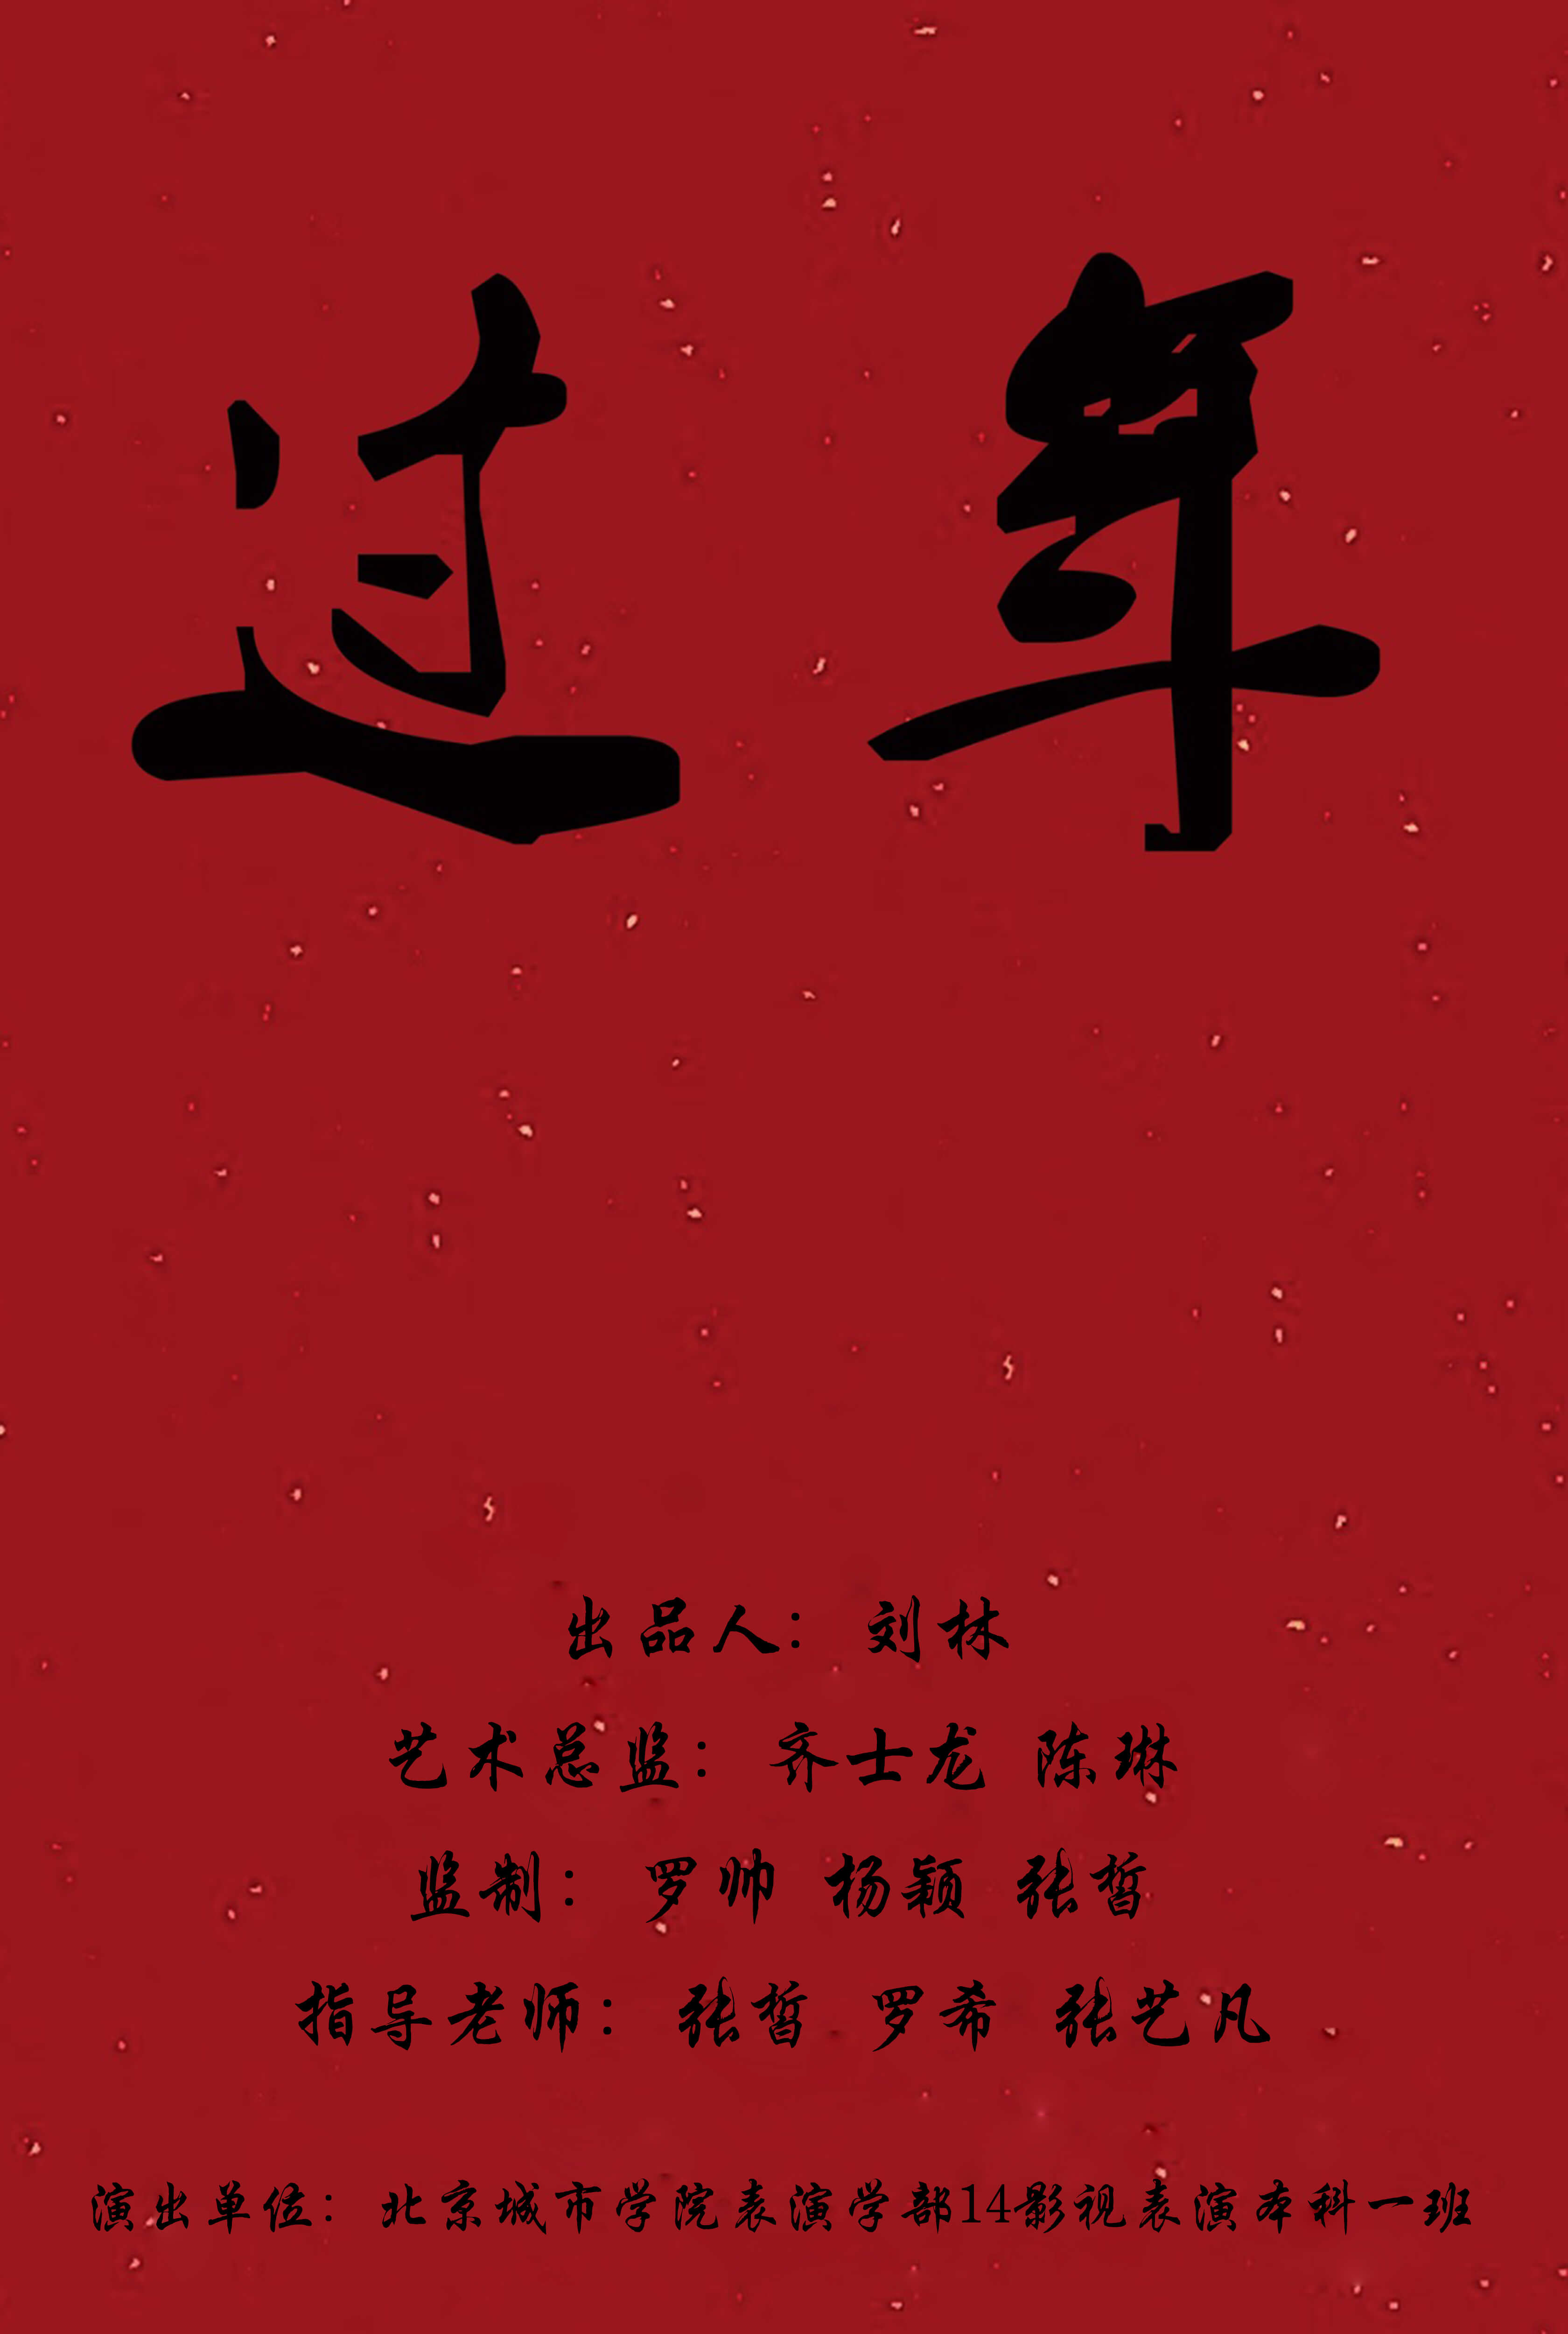 过年
出品人： 刘林
艺术总监： 齐士龙 陈琳
监制： 罗帅 杨颖 张皙
指导老师： 张皙 罗希 张艺凡
演出单位： 北京城市学院表演学部14影视表演本科一班